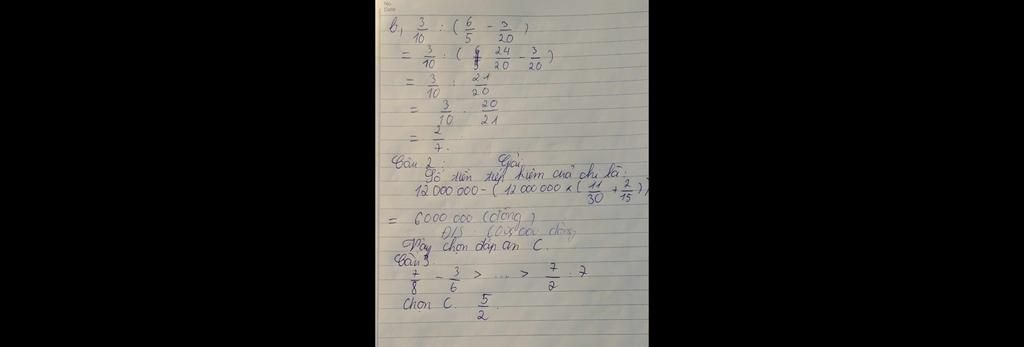 No.
Date
b, 3/10 : ( 6/5 - 3/20 )
= 3/10 : ( 24/20 - 3/20 )
= 3/10 : 21/20
= 3/10 . 20/21
= 2/7.
Câu 2 : Giải
Số tiền tiết kiệm của chị là :
12 000 000 - ( 12 000 000 x ( 11/30 + 2/15 ) )
= 6000 000 (đồng)
Đ/S :
Vậy chọn đáp án C.
Câu 3 :
7/8 - 3/6 > ... > 7/2 : 7
Chọn C. 5/2.